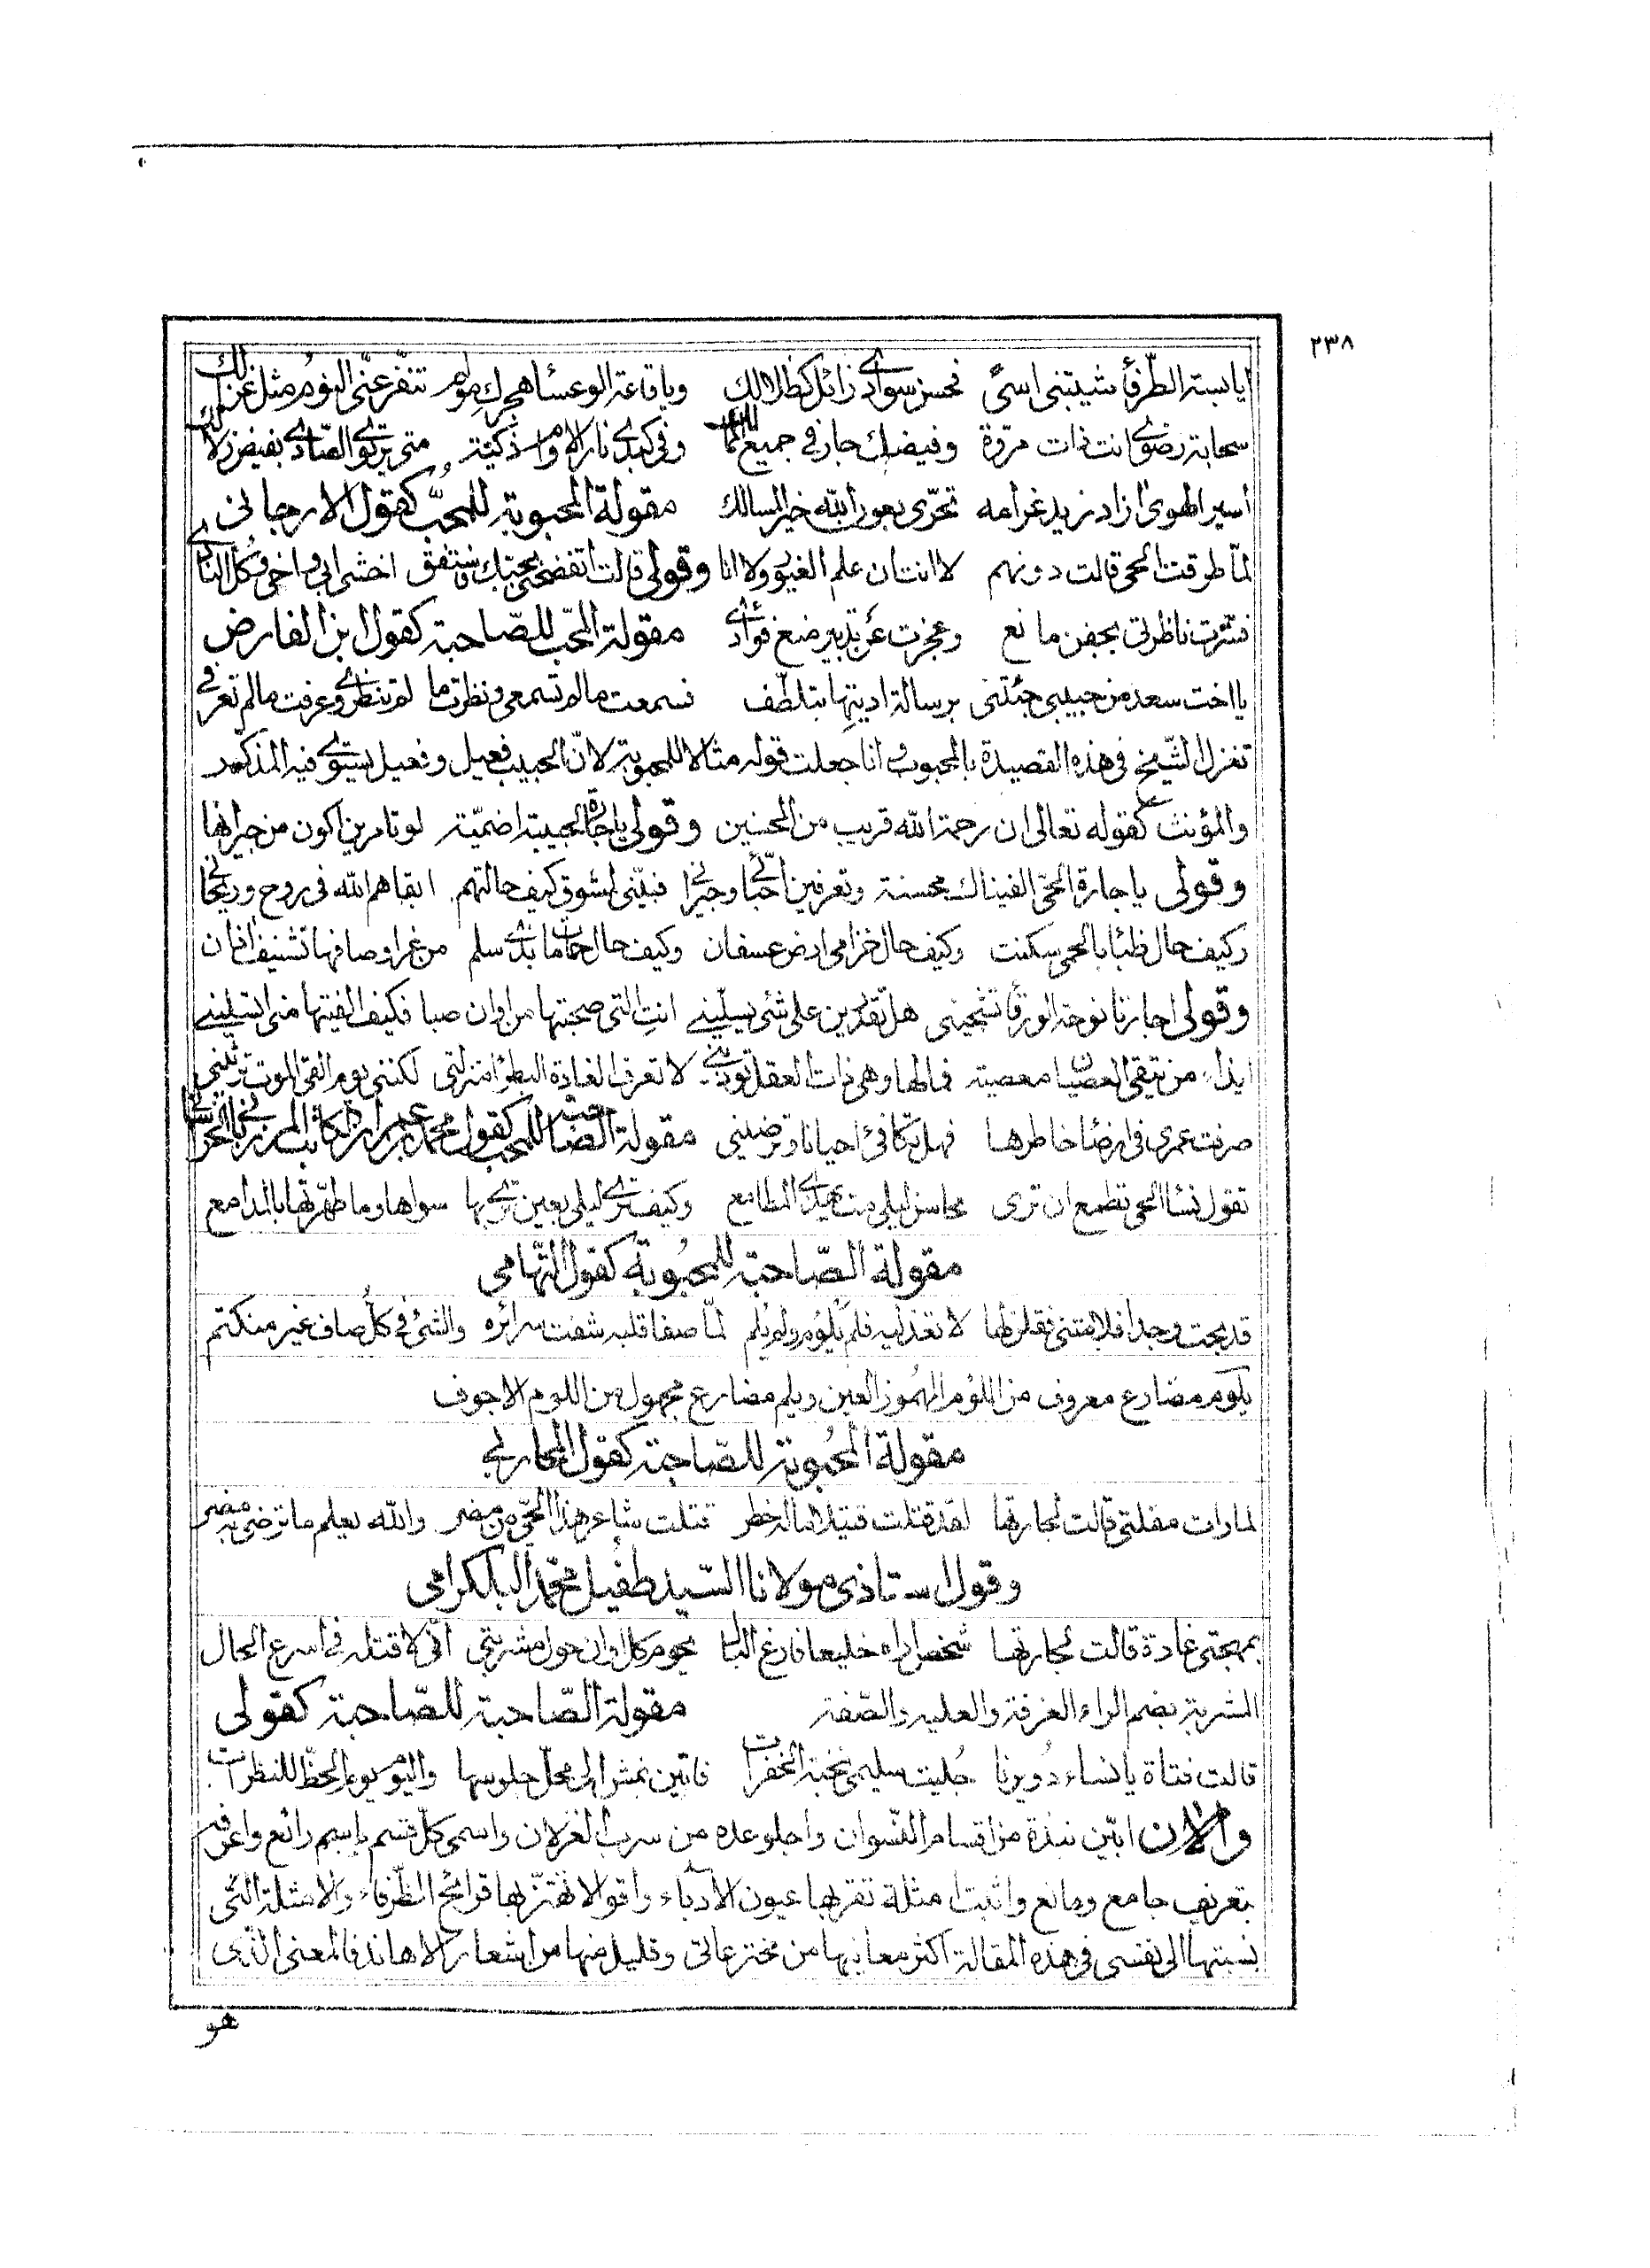 ٢٣٨
ايا بسة الطرفاء شيبتني اسىً فحسن سوادي زائل كظلالك ويا قاعة الوعساء هجرك مؤلم تنفر عني اليوم مثل غزالك
سحابة رضوى انت ذات مروة وفيضك جاز في جميع وفي كبدي نار الاوام ذكية متى يرتوي الصادي بفيض زلالك
اسير الهوى ازاد زيد غرامه تحرى بعون الله خير المسالك مقولة المحبوبة للمحب كقول الارجاني
لما طرقت الحي قالت دونهم لا انت ان علم الغيور ولا انا وقولي قالت اتفضحني بحبك فستفق اخشى ابي واخي وكل
فشرت ناظرتي بجفن مانع وعجزت عن تدبير ضع فؤادي مقولة المحب للصاحبة كقول ابن الفارض
يا اخت سعد من حبيبي جئتني برسالة اديتها بتلطف فسمعت ما لم تسمعي ونظرت ما لم تنظري وعرفت ما لم تعرفي
تغزل الشيخ في هذه القصيدة بالمحبوب وانا جعلت قوله مثالا للمحبوبة لان الحبيب فعيل وفعيل يستوي فيه المذكر
والمؤنث كقوله تعالى ان رحمة الله قريب من المحسنين وقولي يا جارة الحبيبة اضمية لو تامرين اكون من جيرانها
وقولي يا جارة الحي الفيناك محسنة وتعرفين احبائي وجيراني فبئني لمشوق كيف حالتهم ابقاهم الله في روح وريحان
وكيف حال ظباء بالحمى سكنت وكيف حال خزامى ارض عسفان وكيف حال حمامات بذي سلم من غر اوصافها تشنيف اذان
وقولي اجارتا نوحة الورقاء تشجيني هل تقدرين على شيء يسليني انت التي صحبتها من اوان صبا فكيف الفيتها متى استليني
ايذاء من يتقي العصيان معصية فما لها وهي ذات العقل توذيني لا تعرف الغادة البطراء منزلتي لكنني يوم القى الموت ترثيني
صرفت عمري في ارضاء خاطرها فهل تكافئ احيانا وترضيني مقولة الصاحبة للمحب كقول محمد بن الكاتب المرزباني
تقول نساء الحي تطمع ان ترى محاسن ليلى مت بداء المطامع وكيف ترى ليلى بعين ترى بها سواها وما طهرتها بالمدامع
مقولة الصاحبة للمحبوبة كقول التهامي
قد بحت وجدا فلامتني فقلن لها لا تعذليه فلم يلؤم ولم يلم لما صفا قلبه شفت سرائره والشئ في كل صاف غير منكتم
يلؤم مضارع معروف من اللؤم المهموز العين ويلم مضارع مجهول من اللوم الاجوف
مقولة المحبوبة للصاحبة كقول المحاربي
لما رات مقلتي قالت لجارتها لقد قتلت قتيلا ماله خطر قتلت شاعر هذا الحي من مضر والله يعلم ما ترضى به مضر
وقول استاذي مولانا السيد طفيل محمد البلكرامي
بمهجتي غادة قالت لجارتها شخص اراه خليعا فارغ البال يحوم كل اوان حول مشربتي اني لاقتله في اسرع الحال
المشربة بضم الراء الغرفة والعلية والصفة مقولة الصاحبة للصاحبة كقولي
قالت فتاة يا نساء دويرنا جليت سليمى نخبة الخفرات فاتين نمش الى محل جلوسها واليوم يوم الحظ للنظرات
والان ابين نبذة من اقسام النسوان واجلو عدة من سرب الغزلان واسمي كل قسم باسم رائع واعرفه
بتعريف جامع ومانع واثبت امثلة تقر بها عيون الادباء واقوالا تهتز بها قرائح الظرفاء والامثلة التي
نسبتها الى نفسي في هذه المقالة اكثر معانيها من مخترعاتي وقليل منها من اشعار الاهاند فالمعنى الذي
هو